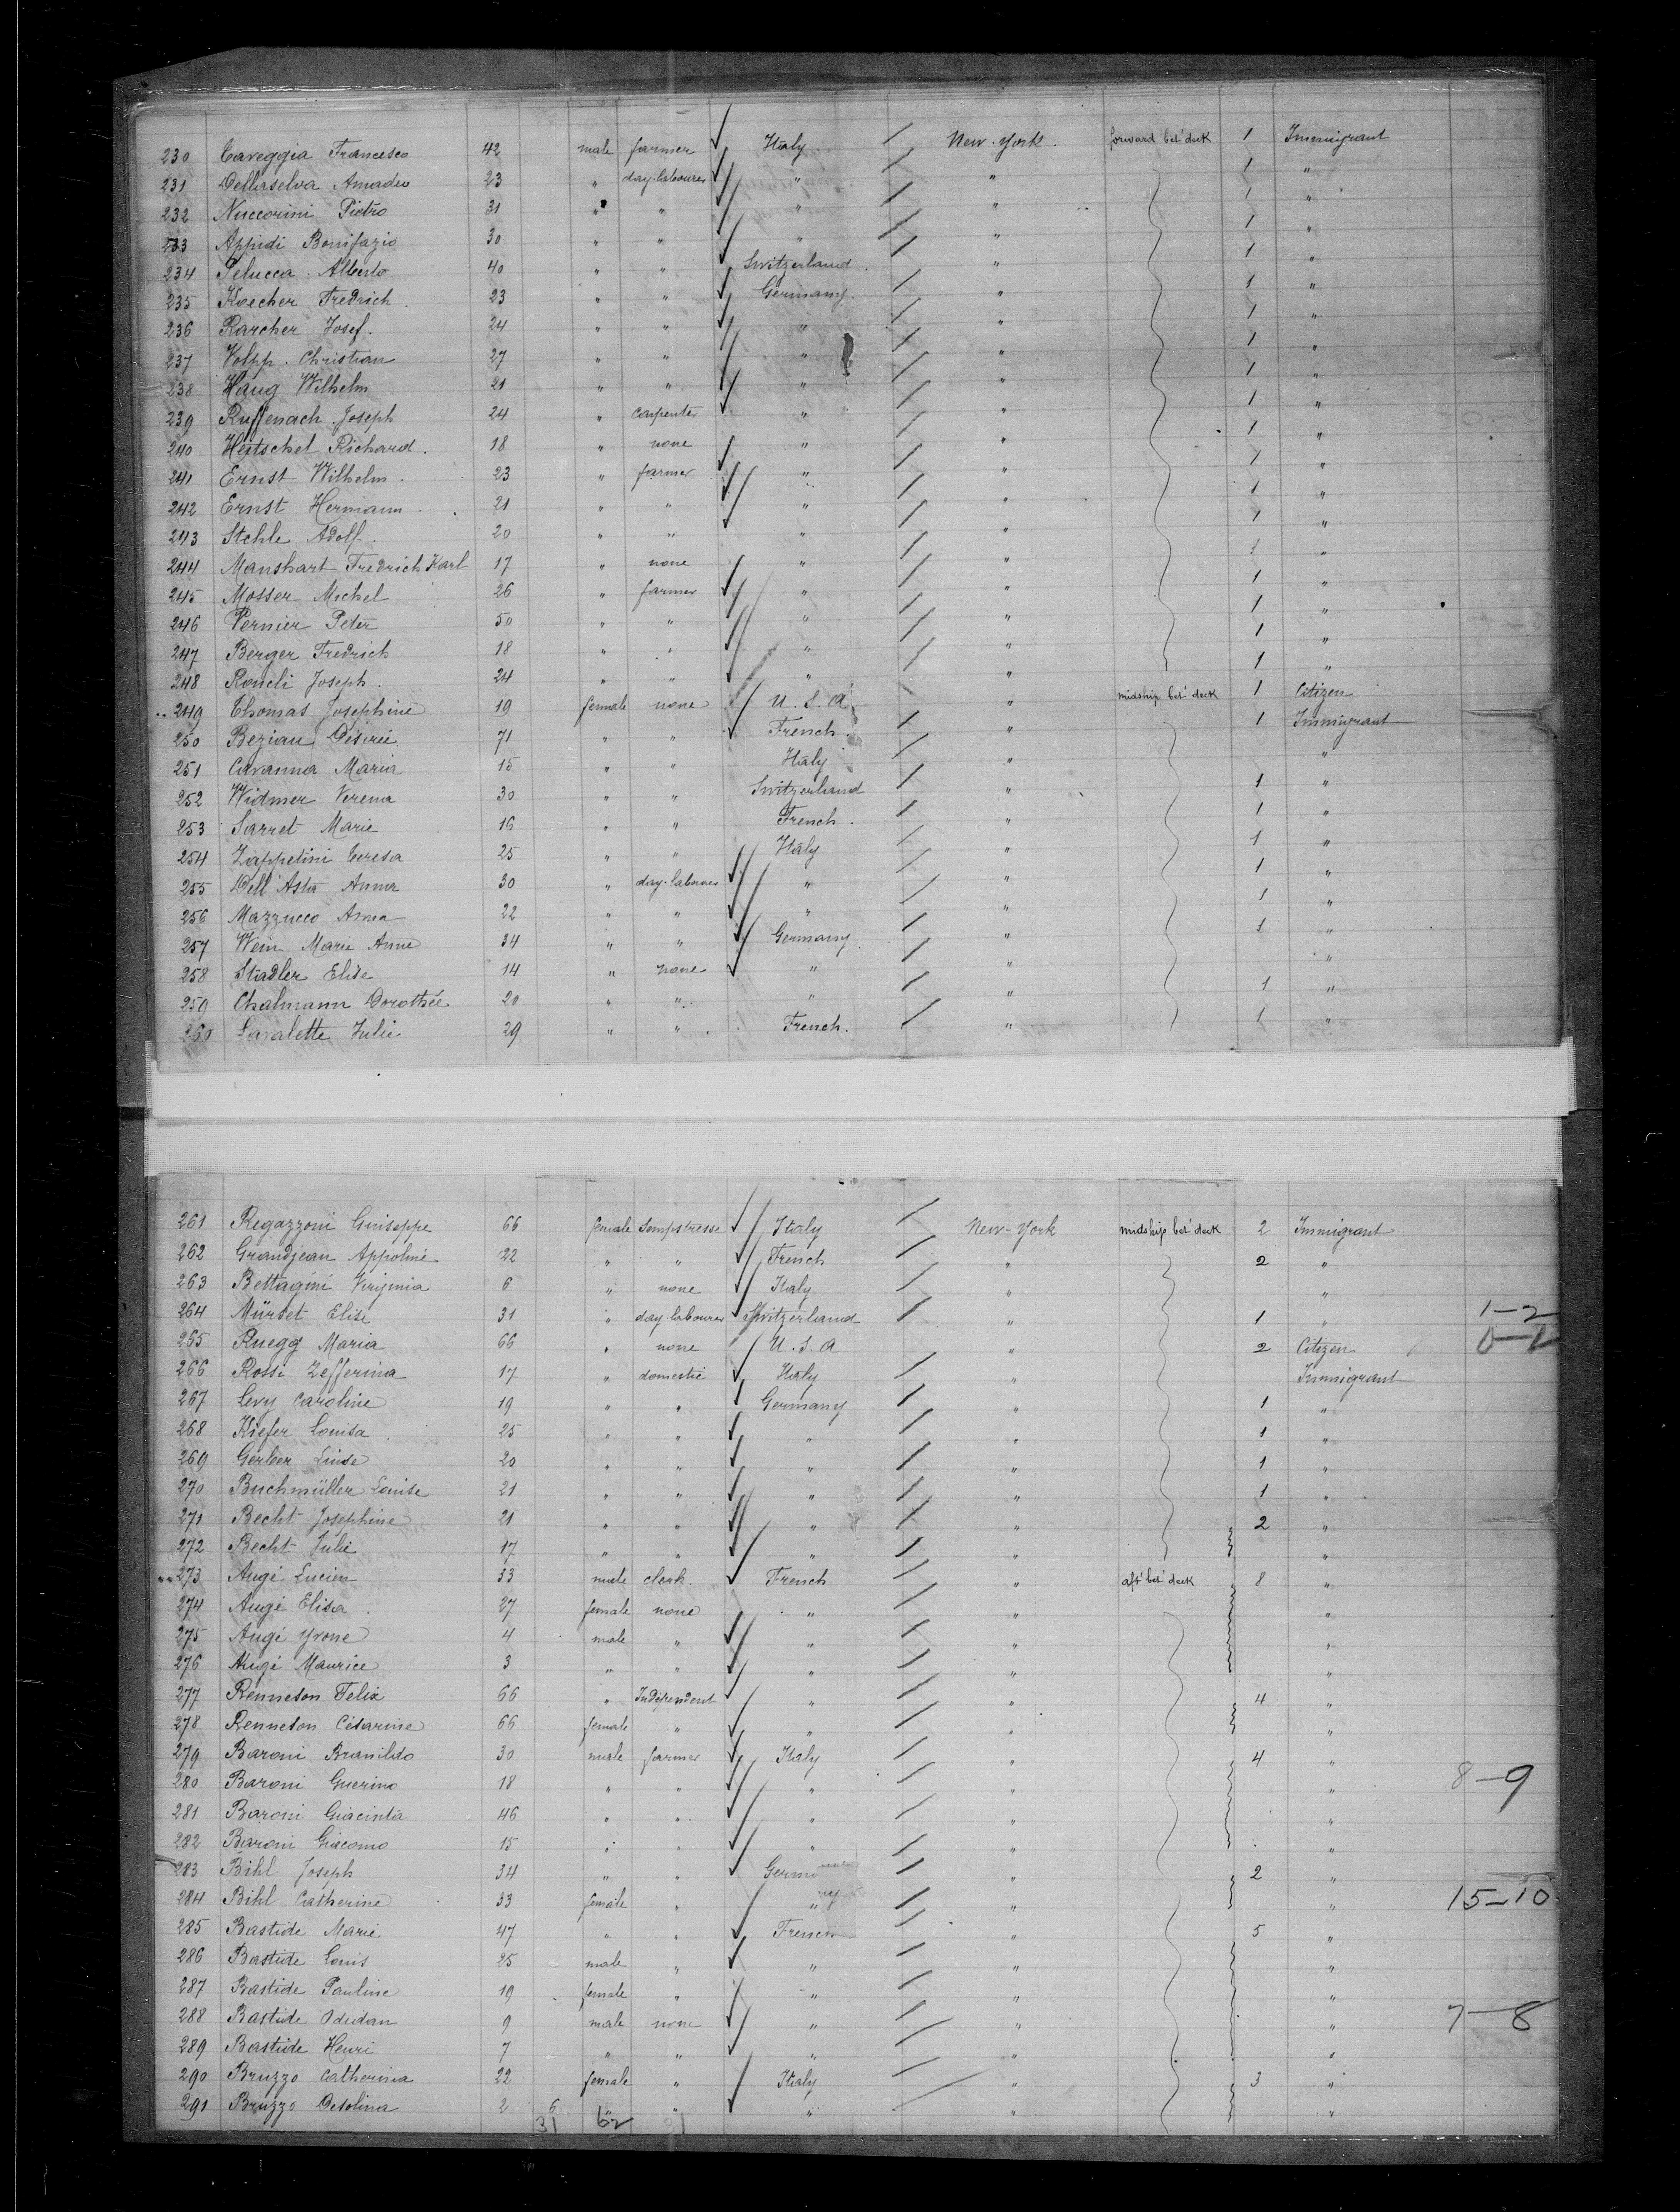 230 Caveggia Francesco 42 male farmer Italy New-York forward bet' deck 1 Immigrant
231 Dellaselva Amadeo 23 " day-labourer " " 1 "
232 Nuccorini Pietro 31 " " " " 1 "
233 Appidi Bonifazio 30 " " " " 1 "
234 Pelucca Alberto 40 " " Switzerland " 1 "
235 Koecher Fredrich 23 " " Germany " 1 "
236 Rarcher Josef 24 " " " " 1 "
237 Volpp Christian 27 " " " " 1 "
238 Haug Wilhelm 21 " " " " 1 "
239 Ruffenach Joseph 24 " carpenter " " 1 "
240 Heitschel Richard 18 " none " " 1 "
241 Ernst Wilhelm 23 " farmer " " 1 "
242 Ernst Hermann 21 " " " " 1 "
243 Stehle Adolf 20 " " " " 1 "
244 Manshart Fredrich Karl 17 " none " " 1 "
245 Mosser Michel 26 " farmer " " 1 "
246 Pernier Peter 50 " " " " 1 "
247 Berger Fredrich 18 " " " " 1 "
248 Roneli Joseph 24 " " " " 1 "
249 Thomas Josephine 19 female none U.S.A " midship bet' deck 1 Citizen
250 Bezian Désirée 71 " " French " 1 Immigrant
251 Cavanna Maria 15 " " Italy " "
252 Widmer Verena 30 " " Switzerland " 1 "
253 Sarret Marie 16 " " French " 1 "
254 Zappetini Teresa 25 " " Italy " 1 "
255 Dell'Asta Anna 30 " day-labourer " " 1 "
256 Mazzucco Anna 22 " " " " 1 "
257 Wein Marie Anne 34 " " Germany " 1 "
258 Stadler Elise 14 " none " " "
259 Chalmann Dorothée 20 " " " " 1 "
260 Lavalette Julie 29 " " French " 1 "
261 Regazzoni Guiseppe 66 female Sempstresse Italy New-York midship bet' deck 2 Immigrant
262 Grandjean Appoline 22 " " French " 2 "
263 Bettagini Virginia 6 " none Italy " "
264 Mürset Elise 31 " day-labourer Switzerland " 1 " 1-2
265 Ruegg Maria 66 " none U.S.A " 2 Citizen
266 Rossi Zefferina 17 " domestic Italy " Immigrant
267 Levy Caroline 19 " " Germany " 1 "
268 Kiefer Louisa 25 " " " " 1 "
269 Gerber Luise 20 " " " " 1 "
270 Buchmüller Louise 21 " " " " 1 "
271 Becht Josephine 21 " " " " 2 "
272 Becht Julie 17 " " " " "
273 Augé Lucien 33 male clerk French " aft' bet' deck 8 "
274 Augé Elisa 27 female none " " "
275 Augé Yvone 4 male " " " "
276 Augé Maurice 3 " " " " "
277 Renneson Felix 66 " Indépendent " " 4 "
278 Renneson Césarine 66 female " " " "
279 Baroni Branildo 30 male farmer Italy " 4 "
280 Baroni Guerino 18 " " " " " 8-9
281 Baroni Giacinta 46 " " " " "
282 Baroni Giacomo 15 " " " " "
283 Bihl Joseph 34 " " Germany " 2 "
284 Bihl Catherine 33 female " " " " 15-10
285 Bastide Marie 47 " " French " 5 "
286 Bastide Louis 25 male " " " "
287 Bastide Pauline 19 female " " " "
288 Bastide 9 male none " " " 7-8
289 Bastide Henri 7 " " " " "
290 Bruzzo Catherina 22 female " Italy " 3 "
291 Bruzzo Desolina 2 6 " " " " "
31 62